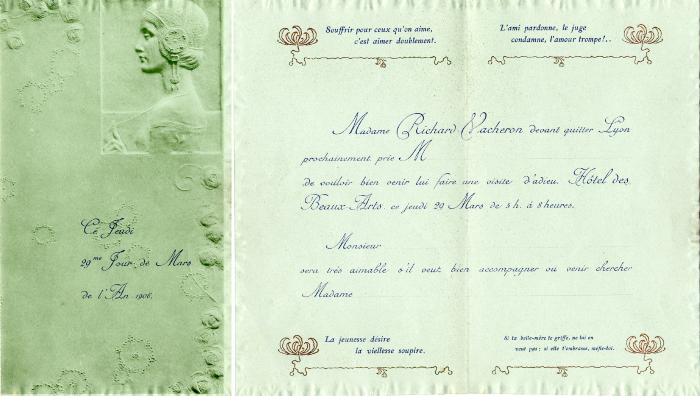 Ce Jeudi
29me Jour de Mars
de l'An 1906.
Souffrir pour ceux qu'on aime,
c'est aimer doublement.
L'ami pardonne, le juge
condamne, l'amour trompe!..
Madame Richard Vacheron devant quitter Lyon
prochainement, prie M
de vouloir bien venir lui faire une visite d'adieu, Hôtel des
Beaux-Arts, ce jeudi 29 Mars de 5 h. à 8 heures.
Monsieur
sera très aimable s'il veut bien accompagner ou venir chercher
Madame
La jeunesse désire
la vieillesse soupire.
Si ta belle-mère te griffe, ne lui en
veut pas; si elle t'embrasse, méfie-toi.